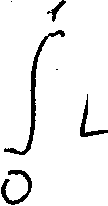 ∫₀¹ L